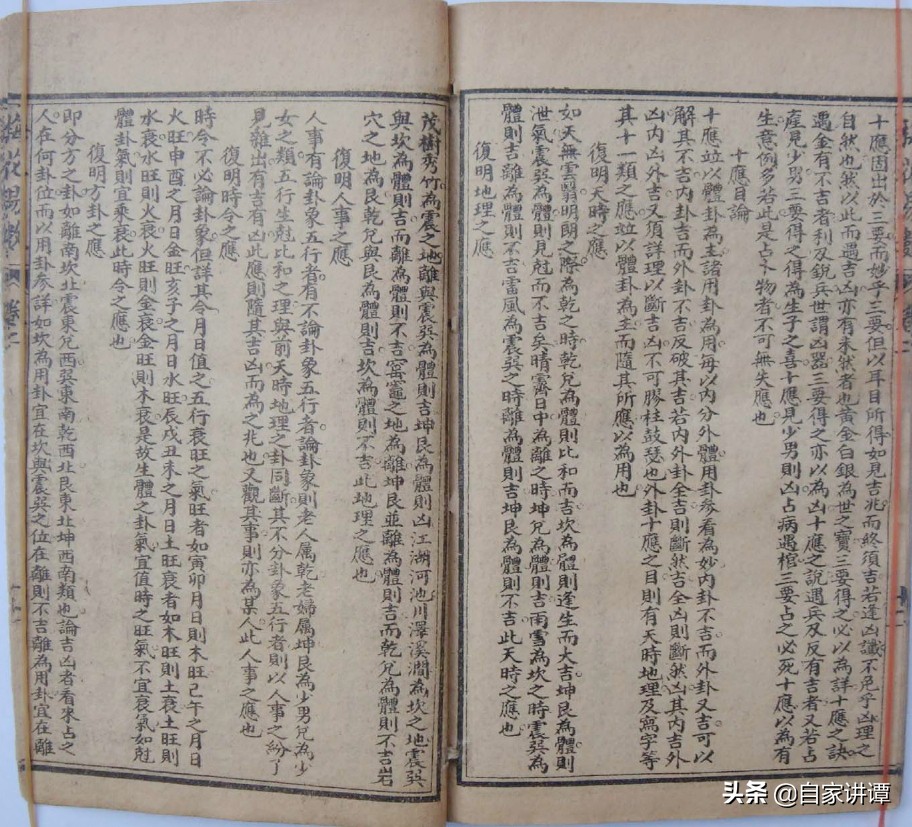 十應固出於三要而妙乎三要但以耳目所得如見吉兆而終須吉若逢凶讖不免乎凶理之
自然也然以此而遇吉凶亦有未然者也黃金白銀為世之寶三要得之必以為詳十應之訣
遇金有不吉者利及銳兵世謂凶器三要得之亦以為凶十應之說遇兵及反有吉者又若占
產見少男三要得之得為生子之喜十應見少男則凶占病遇棺三要占之必死十應以為有
生意例多若此是占卜物者不可無失應也
十應目論
十應竝以體卦為主諸用卦為用每以內分外體用卦參看為妙內卦不吉而外卦又吉可以
解其不吉內卦吉而外卦不吉反破其吉若內外卦全吉則斷然吉全凶則斷然凶其內吉外
凶內凶外吉又須詳理以斷吉凶不可膠柱鼓瑟也外卦十應之目則有天時地理及寫字等
其十一類之應竝以體卦為主而隨其所應以為用也
復明天時之應
如天無雲翳明明之際為乾之時乾兌為體則比和而吉坎為體則逢生而大吉坤艮為體則
泄氣震巽為體則見尅而不吉矣晴霽日中為離之時坤兌為體則吉雨雪為坎之時震巽為
體則吉離為體則不吉雷風為震巽之時離為體則吉坤艮為體則不吉此天時之應也
復明地理之應
茂樹秀竹為震之地離與震巽為體則吉坤艮為體則凶江湖河池川澤溪澗為坎之地震巽
與坎為體則吉而離為體則不吉窑竈之地為離坤艮並離為體則吉而乾兌為體則不吉岩
穴之地為艮乾兌與艮為體則吉坎為體則不吉此地理之應也
復明人事之應
人事有論卦象五行者有不論卦象五行者論卦象則老人属乾老婦属坤艮為少男兌為少
女之類五行生尅比和之理與前天時地理之卦同斷其不分卦象五行者則以人事之紛了
見雜出有吉有凶此應則隨其吉凶而為之兆也又觀其事則亦為某人此人事之應也
復明時令之應
時令不必論卦象但詳其令月日值之五行衰旺之氣旺者如寅卯月日則木旺己午之月日
火旺申酉之月日金旺亥子之月日水旺辰戌丑未之月日土旺衰者如木旺則土衰土旺則
水衰水旺則火衰火旺則金衰金旺則木衰是故生體之卦氣宜值時之旺氣不宜衰氣如尅
體卦氣則宜乘衰此時令之應也
復明方卦之應
即分方之卦如離南坎北震東兌西巽東南乾西北艮東北坤西南類也論吉凶者看來占之
人在何卦位而以用卦參詳如坎為用卦宜在坎與震巽之位在離則不吉離為用卦宜在離
头条 @自家讲谭